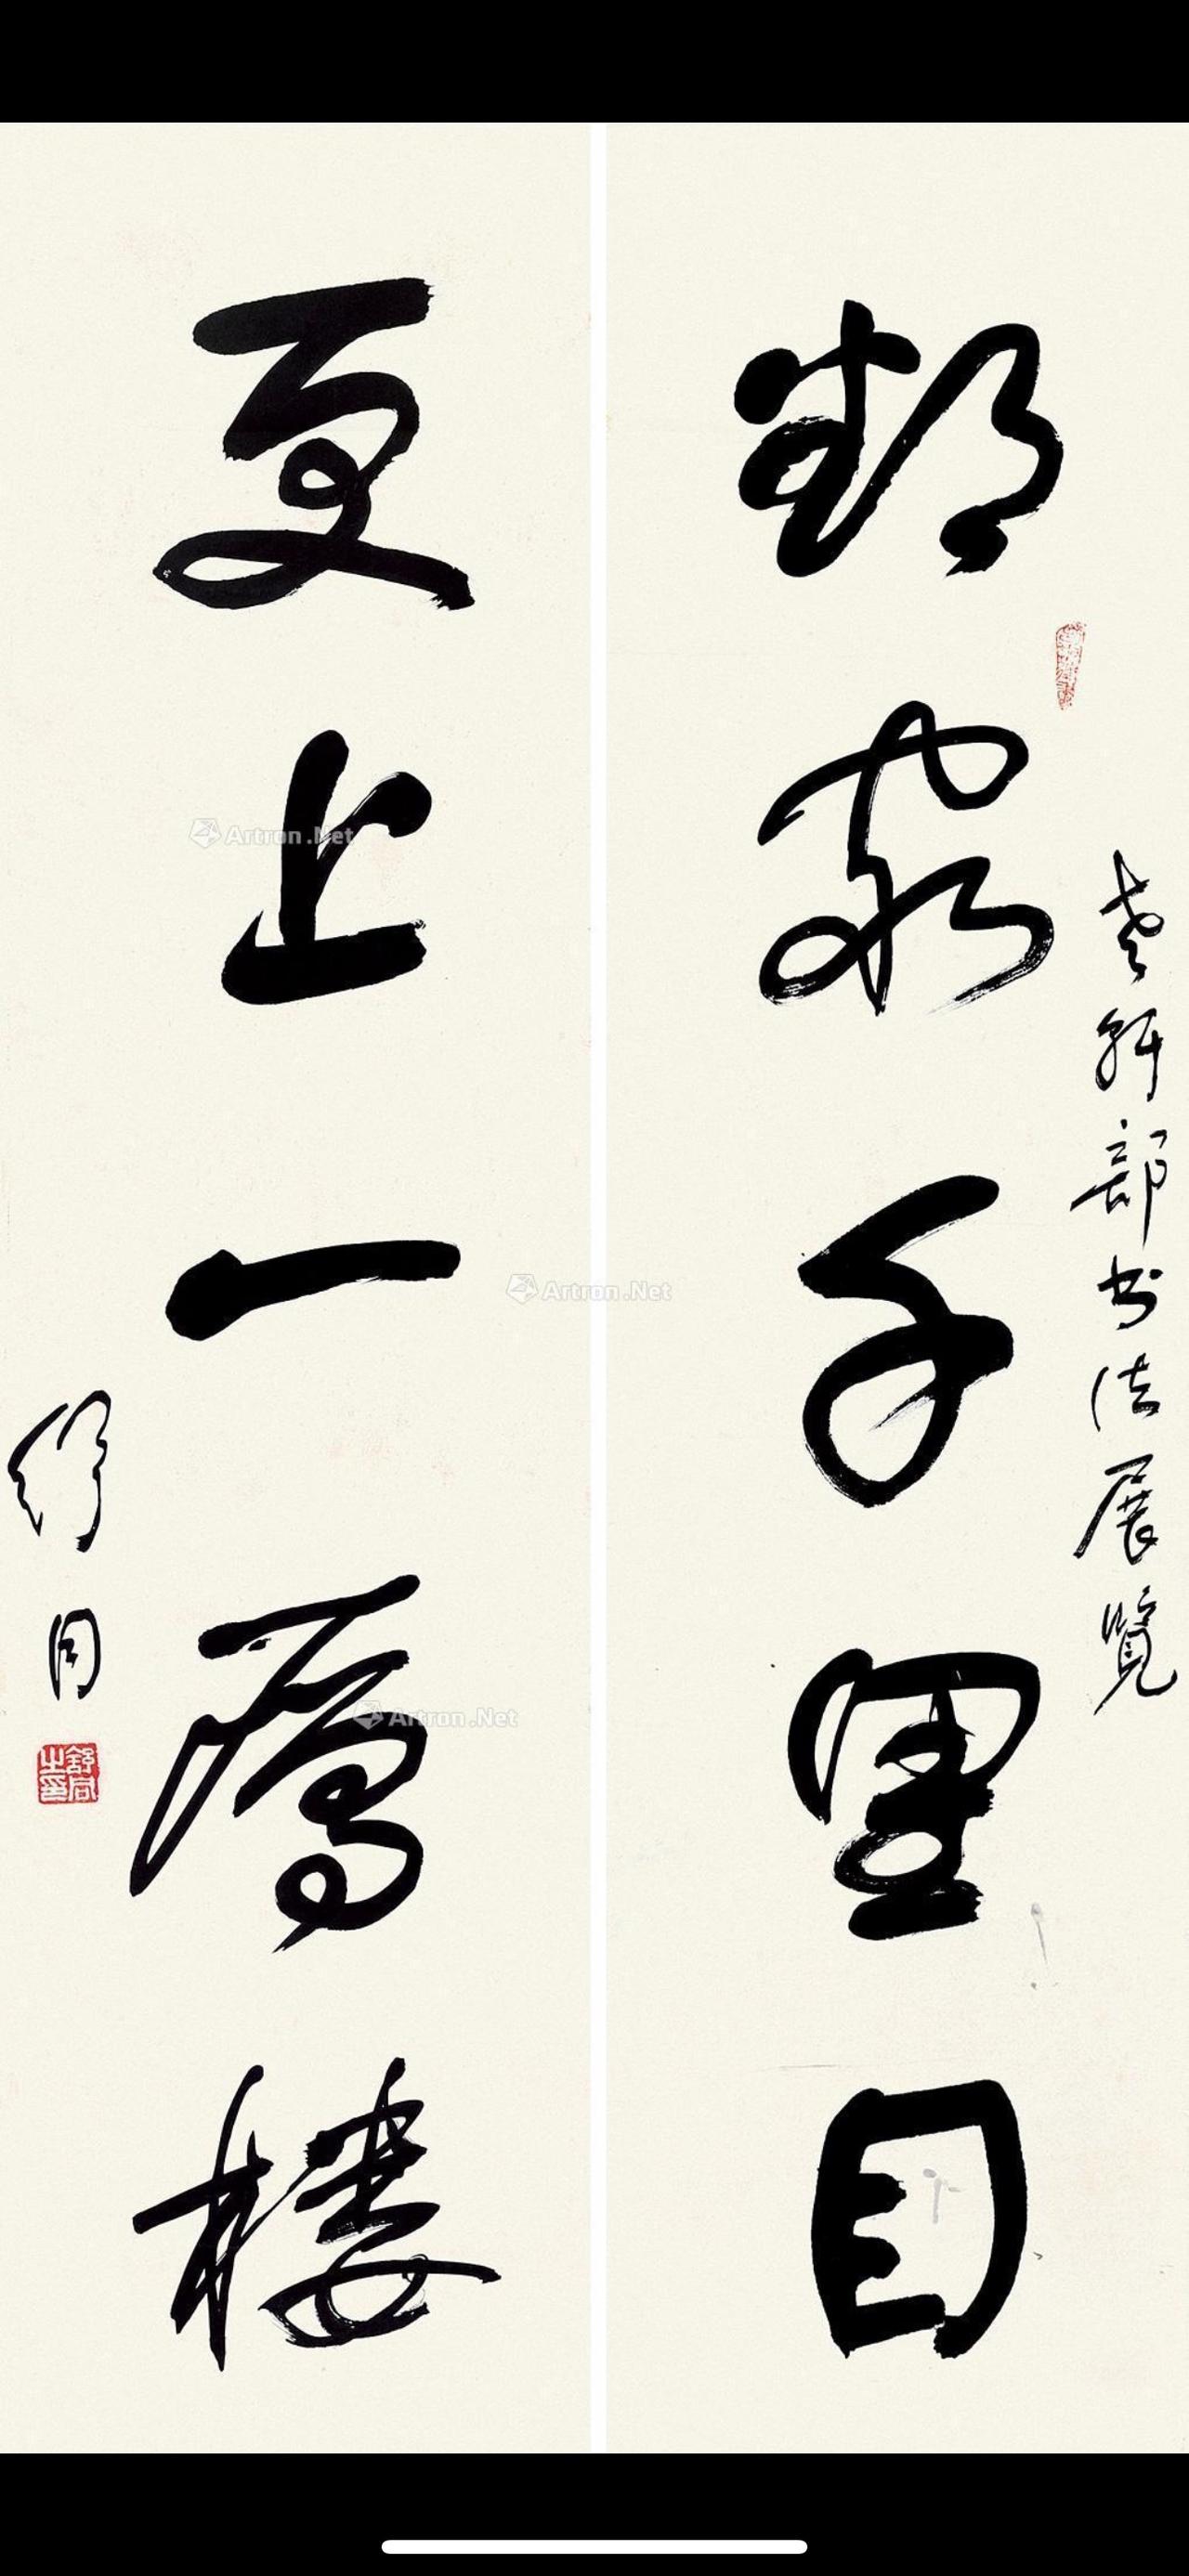 老幹部书法展覽
欲窮千里目
更上一層樓
舒同
舒同之印
Artron.Net
Artron.Net
Artron.Net